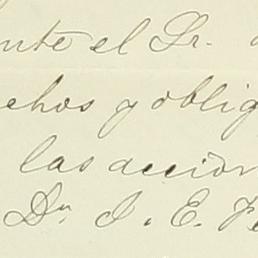 nte el Sr.
echos y oblig
las accion
Dn J. E. Fe